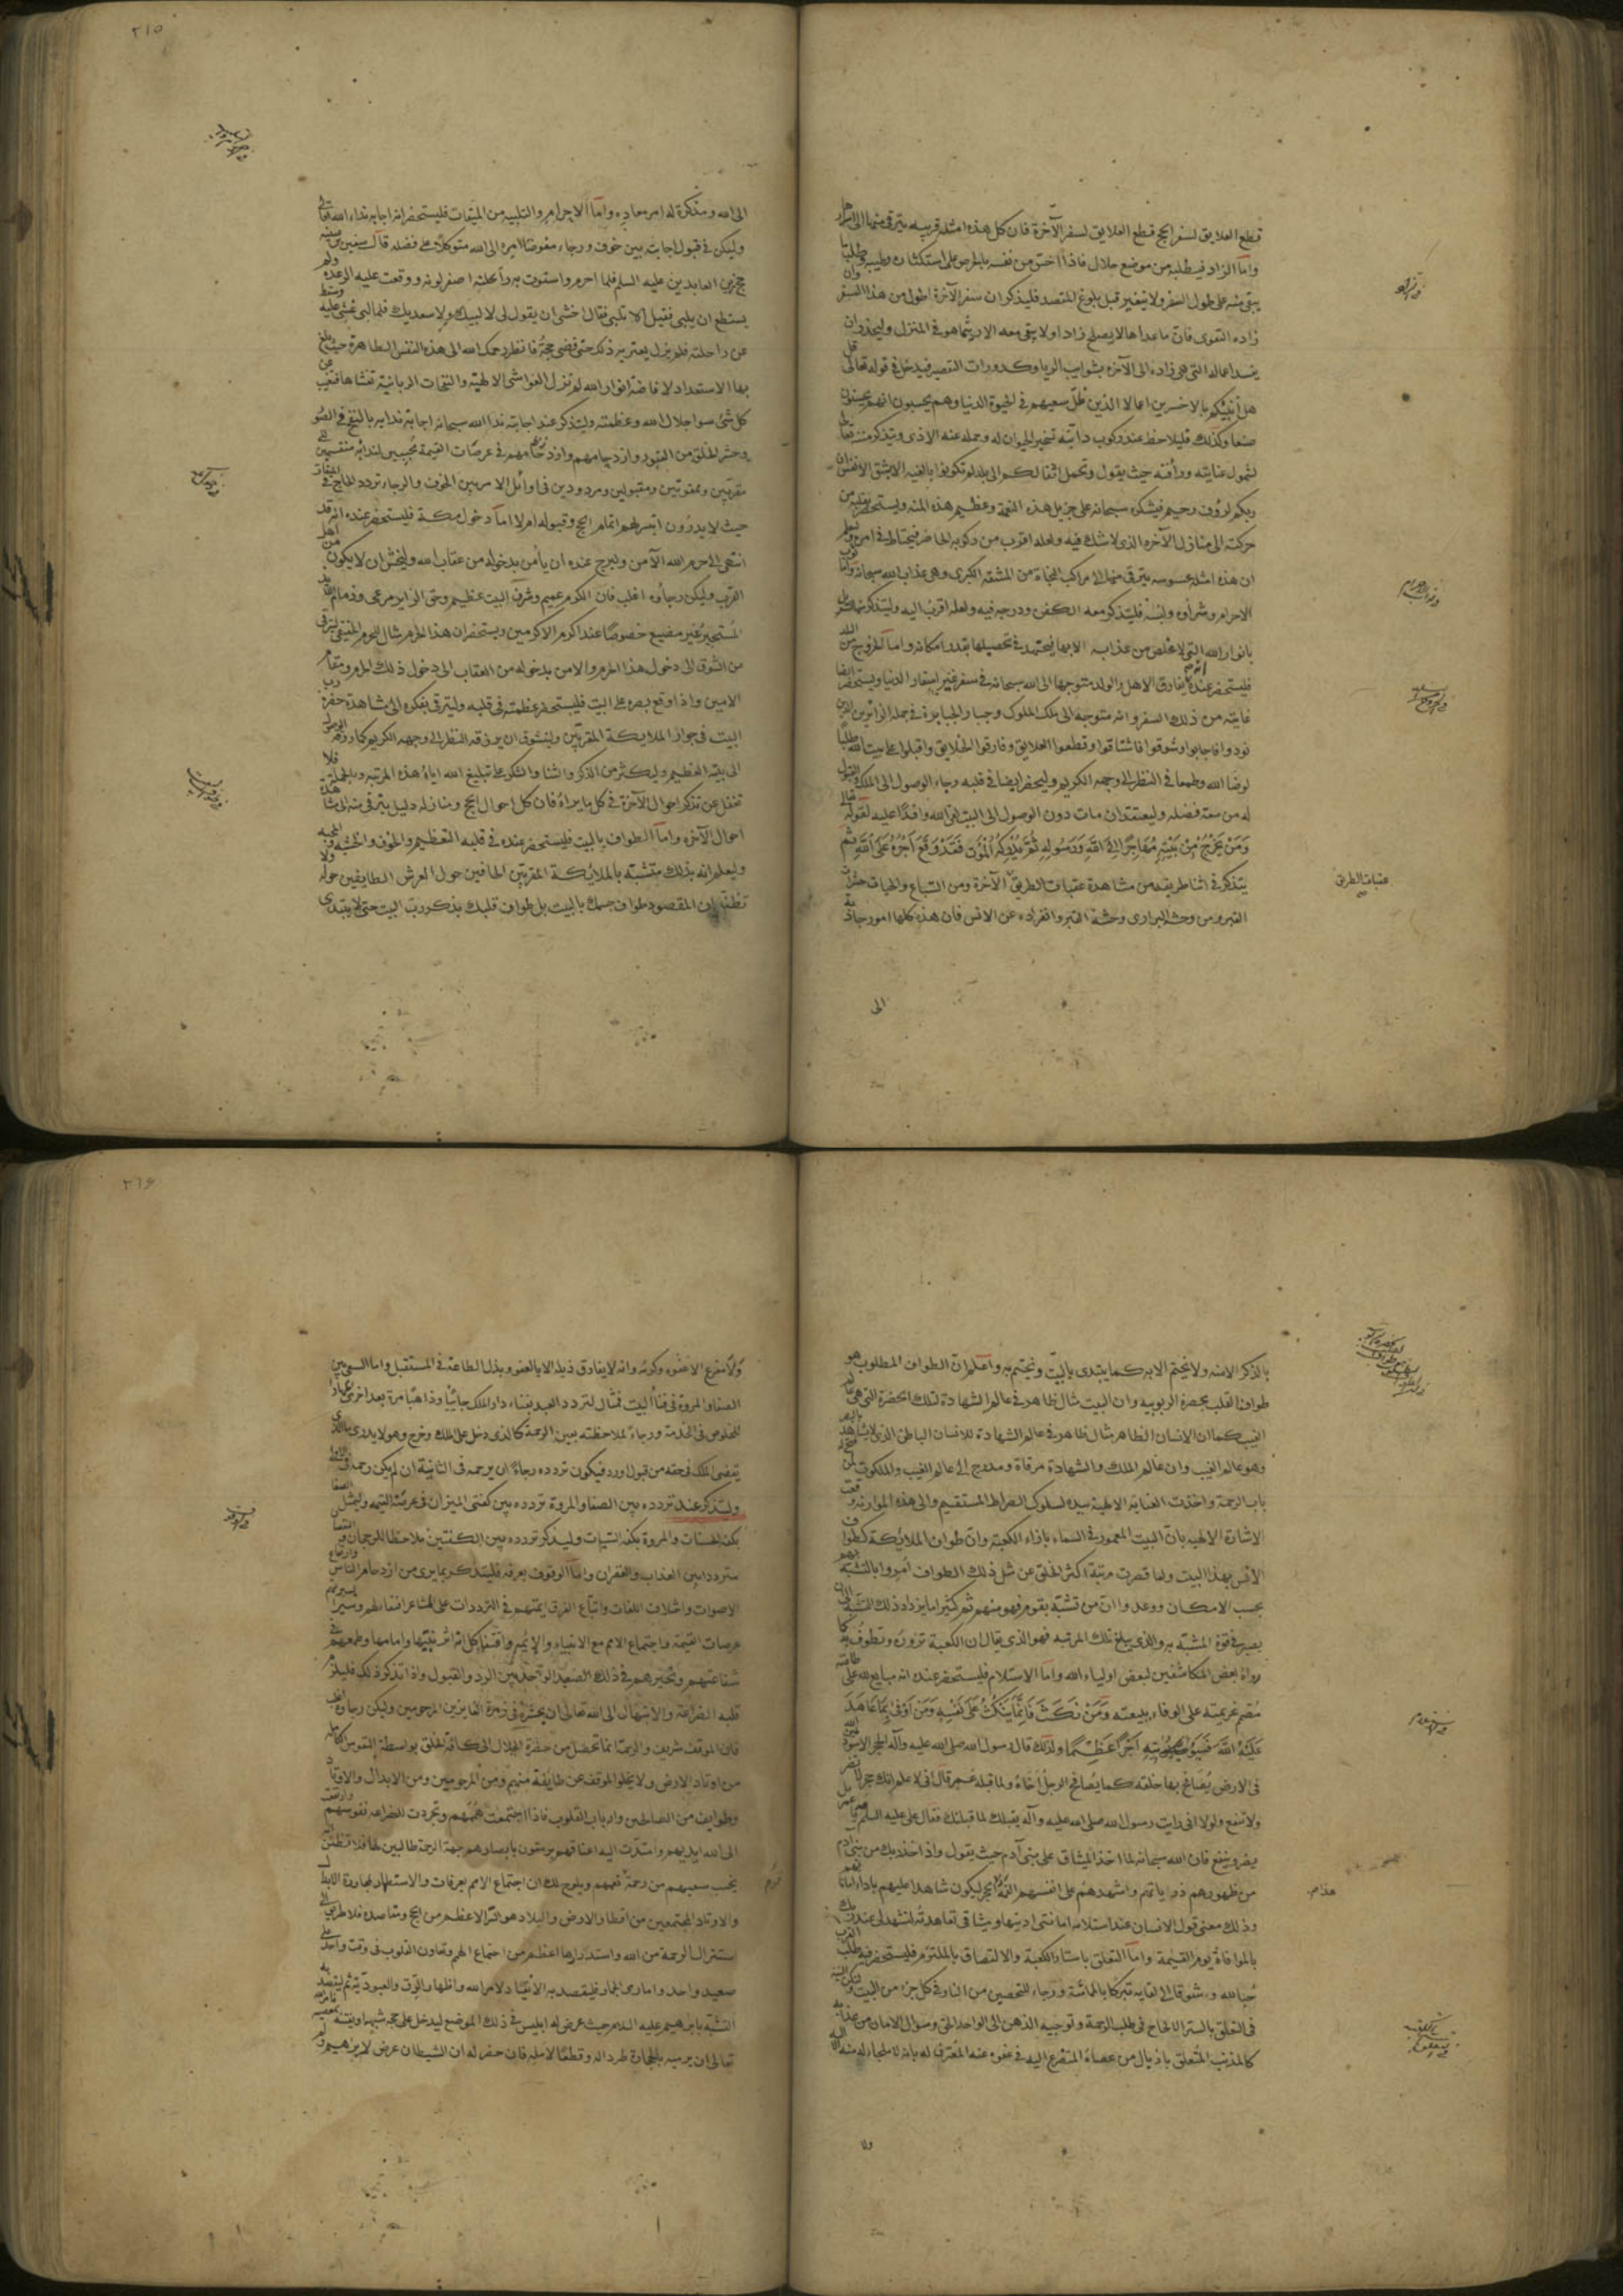 ٢١٥
قطع العلايق لسفر الحج قطع العلايق لسفر الآخرة فان كل هذه امثلة قريبه يترقى منها الى اسرار
واما الزاد فيطلبه من موضع حلال فاذا احس من نفسه بالحرص على استكثاره وطيبه وطلب ما
يبقى منه على طول السفر ولا يتغير قبل بلوغ المقصد فليذكر ان سفر الآخرة اطول من هذا السفر وان
زاده التقوى فان ما عداها لا يصلح زادا ولا يبقى معه الا ريثما هو فى المنزل وليحذر ان
يفسد اعماله التى هى زاده الى الآخره بشوايب الريا وكدورات التقصير فيدخل فى قوله تعالى قل
هل أنبئكم بالاخسرين اعمالا الذين ضلّ سعيهم فى الحيوة الدنيا وهم يحسبون انهم يحسنون
صنعا وكذلك فليلاحظ عند ركوب دابته تسخير الحيوان له وحمله عنه الاذى ويتذكر منته تعالى
لشمول عنايته ورأفته حيث يقول وتحمل اثقالكم الى بلد لم تكونوا بالغيه الا بشق الانفس ان
ربكم لرؤف رحيم فيشكره سبحانه على جزيل هذه النعمة وعظيم هذه المنه ويستحضر بقلبه من
حركته الى منازل الآخره الذى لا شك فيه ولعله اقرب من ركوبه الحاضر فيحتاط فى امره
ان هذه امثله محسوسه يترقى منها الى مراكب النجاة من المشقه الكبرى وهى عذاب الله سبحانه واما ثوب
الاحرام وشرآوه ولبسه فليتذكر معه الكفن ودرجه فيه ولعله اقرب اليه وليتذكر
بانوار الله التى لا مخلص من عذابه الا بها فيجتهد فى تحصيلها بقدر امكانه واما الخروج من البلد
فليستحضر عنده انه يفارق الاهل والولد متوجها الى الله سبحانه فى سفر غير اسفار الدنيا ويستحضر ايضا
غايته من ذلك السفر وانه متوجه الى ملك الملوك وجبار الجبابرة فى جمله الزائرين الذين
نودوا فاجابوا وشوقوا فاشتاقوا وقطعوا العلايق وفارقوا الخلايق واقبلوا على بيت الله طلبا
لرضا الله وطمعا فى النظر الى وجهه الكريم وليحضر ايضا فى قلبه رجاء الوصول الى الملك والقبول
له من سعة فضله وليعتقد ان مات دون الوصول الى البيت لقى الله وافدا عليه لقوله تعالى
وَمَنْ يَخْرُجْ مِنْ بَيْتِهِ مُهَاجِرًا اِلَى اللهِ وَرَسُولِهِ ثُمَّ يُدْرِكْهُ الْمَوْتُ فَقَدْ وَقَعَ اَجْرُهُ عَلَى اللهِ ثم
يتذكر فى اثنا طريقه من مشاهدة عقبات الطريق الآخرة ومن السباع والحيات حشرات
القبر ومن وحشه البرارى وحشة القبر وانفراده عن الانس فان هذه كلها امور جاذبة
عقبات الطريق
الى
الى الله ومذكرة له امر معاده واما الاحرام والتلبيه من الميقات فليستحضر انه اجابه نداء الله تعالى
وليكن فى قبول اجابته بين خوف ورجاء مفوضا امره الى الله متوكلا على فضله قال سفين بن عيينه
حج زين العابدين عليه السلم فلما احرم واستوت به راحلته اصفر لونه ووقعت عليه الرعده ولم
يستطع ان يلبى فقيل الا تلبى فقال اخشى ان يقول لى لا لبيك ولا سعديك فلما لبى غشى عليه وسقط
عن راحلته فلم يزل يعتريه ذلك حتى قضى حجه فانظر رحمك الله الى هذه النفس الطاهرة حيث بلغ
بها الاستعداد لافاضة انوار الله لم تزل الغواشى الالهيّة والنفحات الربانية تغشاها فتغيب عن
كل شئ سوا جلال الله وعظمته وليتذكر عند اجابته ندا الله سبحانه اجابة ندايه بالنفخ فى الصور
وحشر الخلق من القبور وازدحامهم فى عرصات القيمة مجيبين لندائه منقسمين الى
مقربين وممقوتين ومقبولين ومردودين فى اوائل الامر بين الخوف والرجاء تردد الحاج فى الميقات
حيث لا يدرون ايتيسر لهم اتمام الحج وقبوله ام لا اما دخول مكة فليستحضر عنده انه قد
انتهى الى حرم الله الآمن وليرج عنده ان يأمن بدخوله من عقاب الله وليخش ان لا يكون من اهل
القرب وليكن رجآوه اغلب فان الكرم عميم وشرف البيت عظيم وحق الزاير مرعى وذمام
المستجير غير مضيع خصوصا عند اكرم الاكرمين ويستحضر ان هذا الحرم مثال للحرم الحقيقى ليترقى
من الشوق الى دخول هذا الحرم والامن بدخوله من العقاب الى دخول ذلك الحرم ومقام
الامين واذا وقع بصره على البيت فليستحضر عظمته فى قلبه وليترقى بفكره الى مشاهدة حضرة رب
البيت فى جوار الملايكة المقربين وليتشوق ان يرزقه النظر الى وجهه الكريم كما رزقه الوصول
الى بيته العظيم وليكثر من الذكر والثنا والشكر على تبليغ الله اياه هذه المرتبه وبالجملة فلا
تغفل عن تذكر احوال الآخرة فى كل ما يراه فان كل احوال الحج ومنازله دليل يترقى منه الى مشاهدة
احوال الآخره واما الطواف بالبيت فليستحضر عنده فى قلبه التعظيم والخوف والخشية والمحبه
وليعلم انه بذلك متشبه بالملايكة المقربين الحافين حول العرش الطايفين حوله ولا
تظنن ان المقصود طواف جسمك بالبيت بل طواف قلبك بذكر رب البيت حتى لا يبتدى
٢١٦
بالذكر الا منه ولا يختم الا به كما يبتدى بالبيت ويختم به واعلم ان الطواف المطلوب هو
طواف القلب بحضرة الربوبيه وان البيت مثال ظاهر فى عالم الشهادة لتلك الحضرة التى هى عالم
الغيب كما ان الانسان الظاهر مثال ظاهر فى عالم الشهادة للانسان الباطن الذى لا يشاهد بالبصر
وهو عالم الغيب وان عالم الملك والشهادة مرقاة ومدرج الى عالم الغيب والملكوت لمن فتح له
باب الرحمة واخذت العنايه الالهية بيده لسلوك الصراط المستقيم والى هذه الموازنه وقعت
الاشارة الالهيه بان البيت المعمور فى السماء بازاء الكعبة وان طواف الملائكة كطواف
الانس بهذا البيت ولما قصرت مرتبة اكثر الخلق عن مثل ذلك الطواف امروا بالتشبه بهم
بحسب الامكان ووعدوا ان من تشبّه بقوم فهو منهم ثم كثيرا ما يزداد ذلك التشبه الى ان
يصير فى قوة المشبه به والذى يبلغ تلك المرتبه فهو الذى يقال ان الكعبة تزوره وتطوف به كما
رواه بعض المكاشفين لبعض اولياء الله واما الاستلام فليستحضر عنده انه مبايع لله على طاعته
مصمم عزيمته على الوفاء ببيعته وَمَنْ نَكَثَ فَاِنَّمَا يَنْكُثُ عَلَى نَفْسِهِ وَمَنْ اَوْفَىٰ بِمَا عَاهَدَ
عَلَيْهُ اللهَ فَسَيُؤْتِيهِ اَجْرًا عَظِيمًا ولذلك قال رسول الله صلى الله عليه وآله الحجر الاسود يمين الله
فى الارض يصافح بها خلقه كما يصافح الرجل اخاه ولما قبله عمر قال انى لاعلم انك حجر لا تضر
ولا تنفع ولولا انى رايت رسول الله صلى الله عليه وآله يقبلك لما قبلتك فقال على عليه السلم
يضر وينفع فان الله سبحانه لما اخذ الميثاق على بنى آدم حيث يقول واذ اخذ ربك من بنى آدم
من ظهورهم ذرياتهم واشهدهم على انفسهم القمه الحجر ليكون شاهدا عليهم باداء امانتهم
وذلك معنى قول الانسان عند استلامه امانتى اديتها وميثاقى تعاهدته لتشهد لى عند ربك
بالموافاة يوم القيمة واما التعلق باستار الكعبة والالتصاق بالملتزم فليستحضر فيه طلب القرب
حبا لله وشوقا الى لقايه تبركا بالمماسّة ورجاء للتحصين من النار فى كل جزء من البيت
فى التعلق بالستر الالحاح فى طلب الرحمة وتوجيه الذهن الى الواحد الحق وسوال الامان من عذابه
كالمذنب المتعلق باذيال من عصاه المتضرع اليه فى عفوه عنه المعترف له بانه لا ملجاء له منه الا اليه
ولا
ولا مفزع الا عفوه وكرمه وانه لا يفارق ذيله الا بالعفو وبذل الطاعة فى المستقبل واما السعى بين
الصفا والمروة فى فنا البيت فمثال لتردد العبد بفناء دار الملك جائيا وذاهبا مرة بعد اخرى
للخلوص فى الخدمة ورجاء لملاحظته بعين الرحمة كالذى دخل على الملك وخرج وهو لا يدرى ما الذى
يقضى الملك فى حقه من قبول او رد فيكون تردده رجاء ان يرحمه فى الثانية ان لم يكن رحمه فى الاولى
وليتذكر عند تردده بين الصفا والمروة تردده بين كفتى الميزان فى عرصة القيمه وليمثل الصفا
بكفة الحسنات والمروة بكفة السيئات وليذكر تردده بين الكفتين ملاحظا للرجحان والنقصان
مترددا بين العذاب والغفران واما الوقوف بعرفة فليتذكر بما يرى من ازدحام الناس وارتفاع
الاصوات واختلاف اللغات واتباع الفرق ايمتهم فى الترددات على المشاعر
عرصات القيمة واجتماع الامم مع الانبياء والايمة واقتفا كل امة اثر نبيها وامامها وطمعهم فى
شفاعتهم وتحيرهم فى ذلك الصعيد الواحد بين الرد والقبول واذا تذكر ذلك فليلزم
قلبه الضراعة والابتهال الى الله تعالى ان يحشره فى زمرة الفايزين المرحومين وليكن رجاوه اغلب
فان الموقف شريف والرحمة انما تحصل من حضرة الجلال الى كافة الخلق بواسطة النفوس الكاملة
من اوتاد الارض ولا يخلو الموقف عن طايفة منهم ومن المرحومين ومن الابدال والاوتاد
وطوايف من الصالحين وارباب القلوب فاذا اجتمعت هممهم وتجردت للضراعه نفوسهم وارتفعت
الى الله ايديهم وامتدت اليه اعناقهم يرمقون بابصارهم جهة الرحمة طالبين لها فلا تظنن
يخيب سعيهم من رحمة تعمهم ويلوح لك ان اجتماع الامم بعرفات والاستظهار بمجاورة الابدال
والاوتاد المجتمعين من اقطار الارض والبلاد هو السر الاعظم من الحج ومقاصده فلا طريق الى
استنزال الرحمة من الله واستدرارها اعظم من اجتماع الهمم وتعاون القلوب فى وقت واحد على
صعيد واحد واما رمى الجمار فليقصد به الانقياد لامر الله واظهار الرق والعبودية ثم ليقصد به
التشبه بابرهيم عليه السلام حيث عرض له ابليس فى ذلك الموضع ليدخل على حجه شبهة او يفتنه
تعالى ان يرميه بالحجارة طردا له وقطعا لامله فان خطر له ان الشيطان عرض لابرهيم